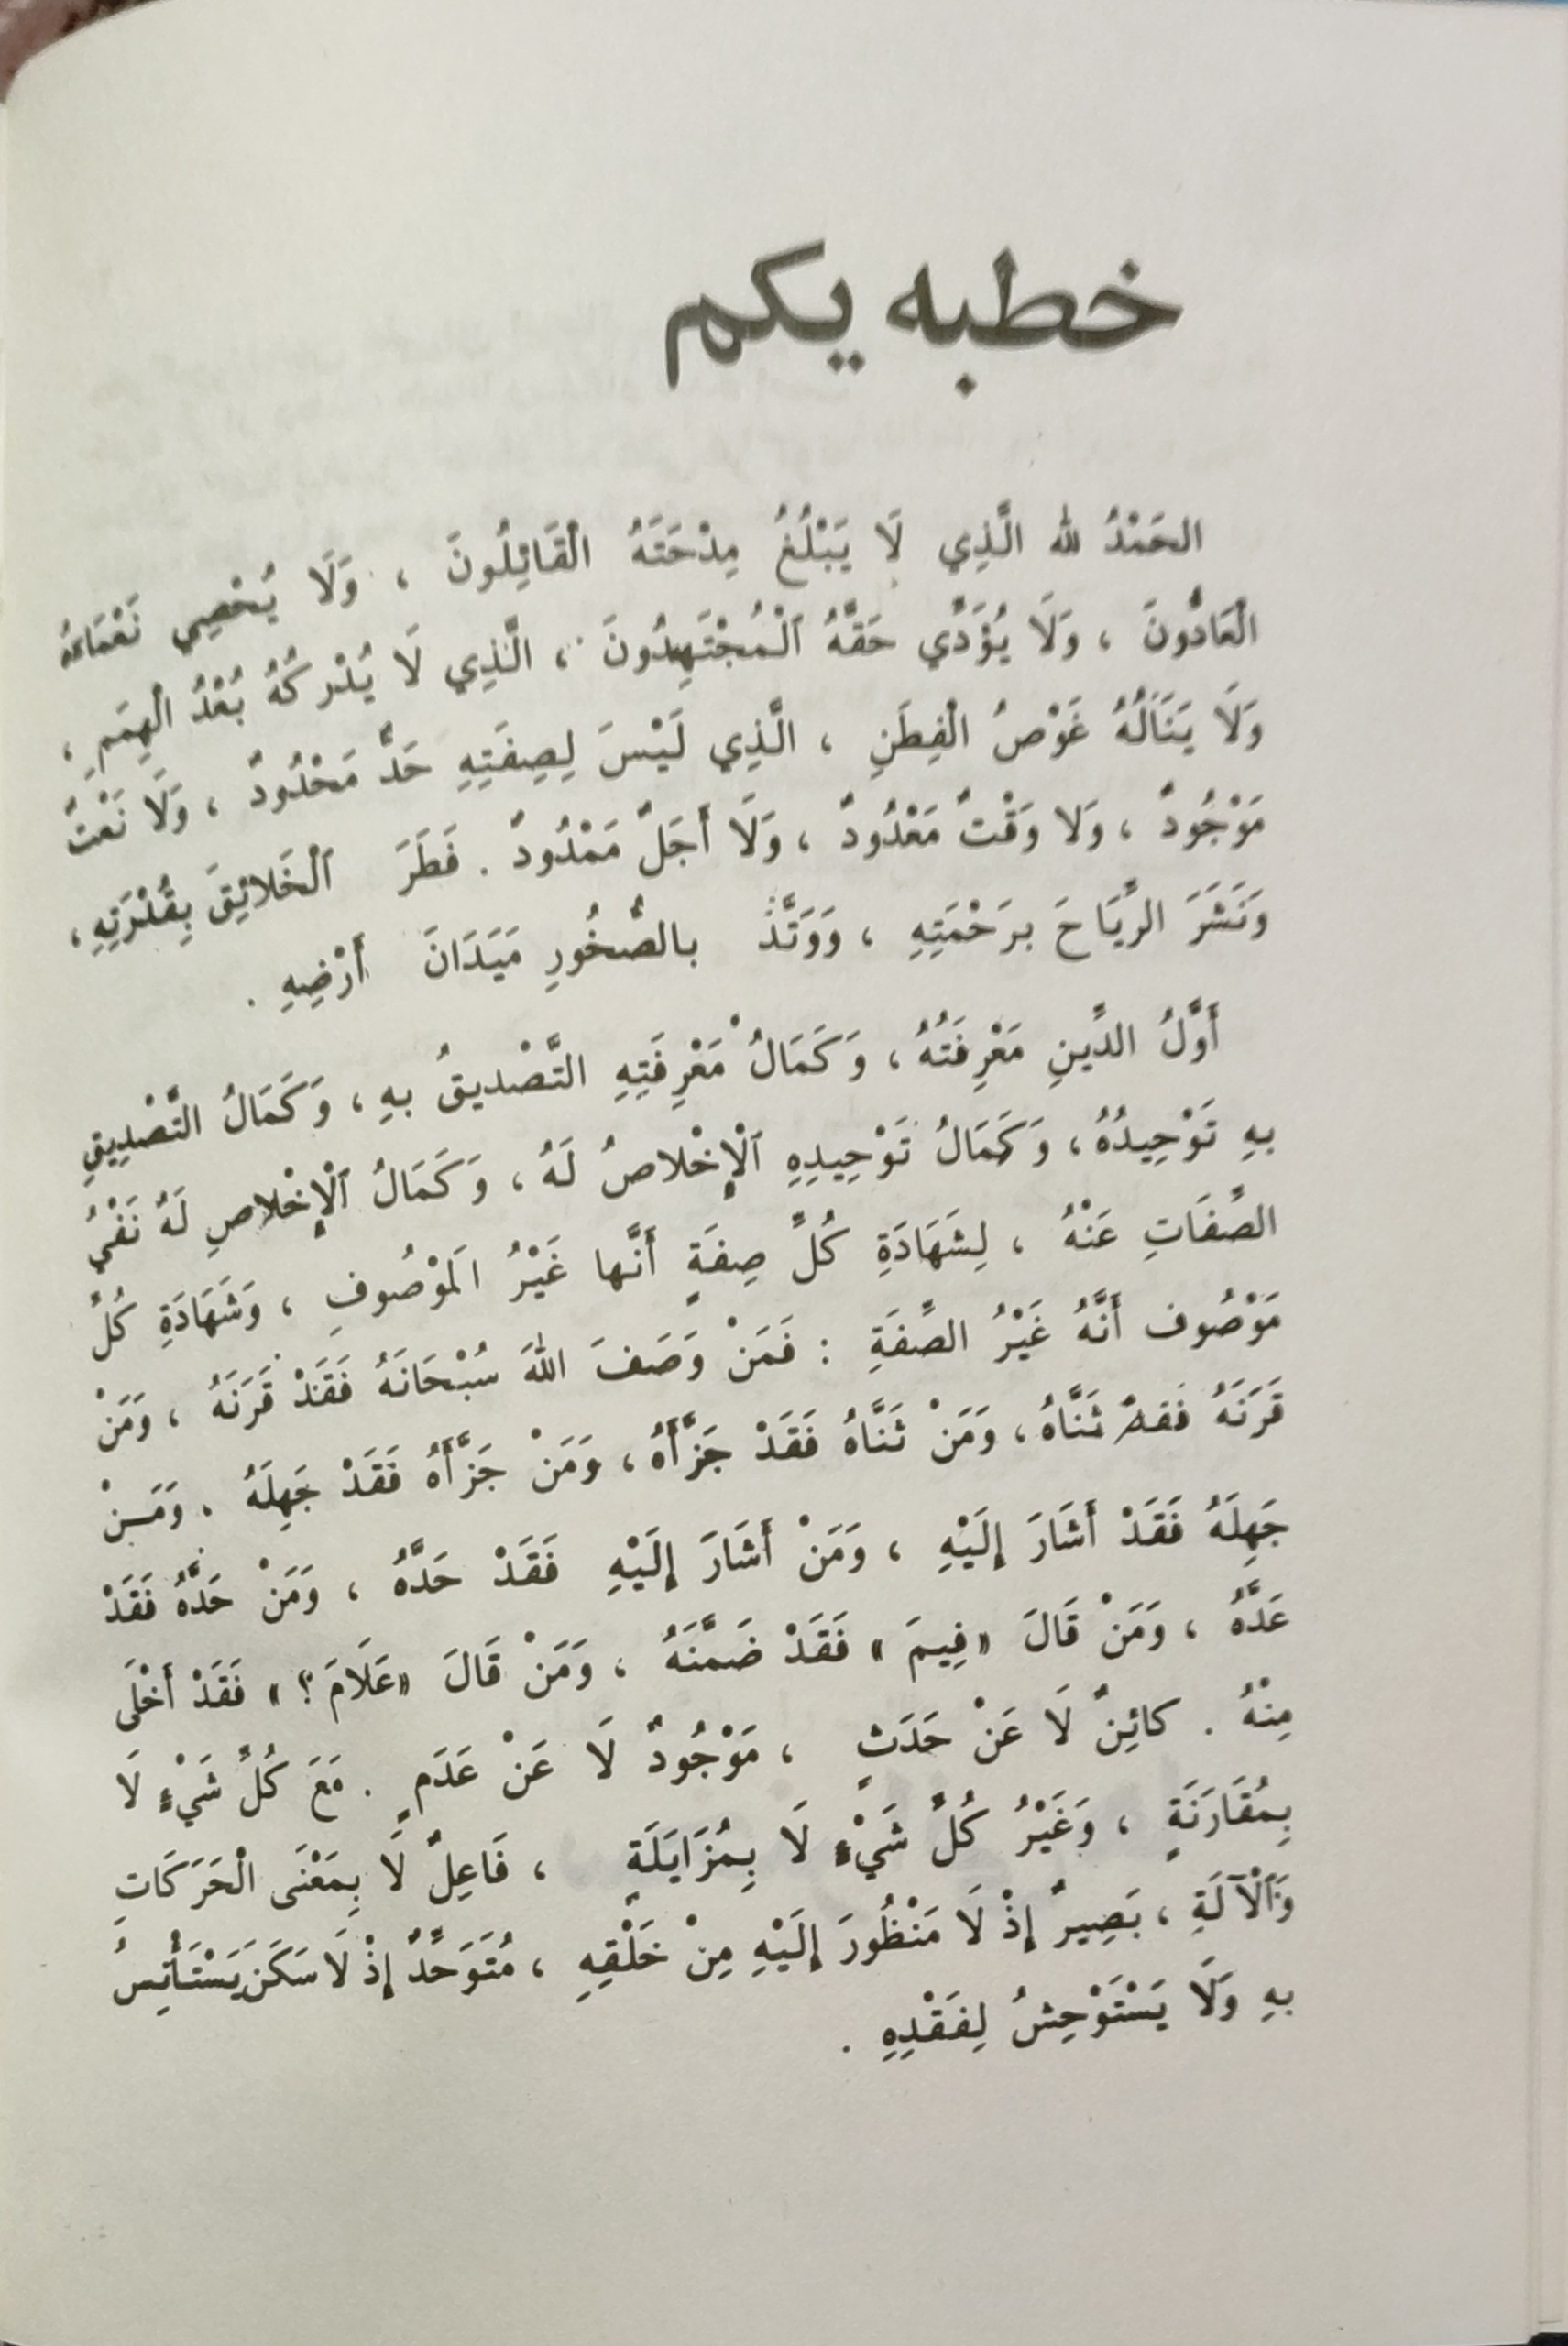 خطبه یکم
الحَمْدُ لله الَّذِي لَا يَبْلُغُ مِدْحَتَهُ الْقَائِلُونَ ، وَلَا يُحْصِي نَعْمَاءَهُ
الْعَادُّونَ ، وَلَا يُؤَدِّي حَقَّهُ ٱلْمُجْتَهِدُونَ ، الَّذِي لَا يُدْرِكُهُ بُعْدُ الْهِمَمِ ،
وَلَا يَنَالُهُ غَوْصُ الْفِطَنِ ، الَّذِي لَيْسَ لِصِفَتِهِ حَدٌّ مَحْدُودٌ ، وَلَا نَعْتٌ
مَوْجُودٌ ، وَلا وَقْتٌ مَعْدُودٌ ، وَلَا أَجَلٌ مَمْدُودٌ . فَطَرَ ٱلْخَلائِقَ بِقُدْرَتِهِ ،
وَنَشَرَ الرِّيَاحَ برَحْمَتِهِ ، وَوَتَّدَ بالصُّخُورِ مَيَدَانَ أَرْضِهِ .
أَوَّلُ الدِّينِ مَعْرِفَتُهُ ، وَكَمَالُ مَعْرِفَتِهِ التَّصْديقُ بهِ ، وَكَمَالُ التَّصْدِيقِ
بهِ تَوْحِيدُهُ ، وَكَمَالُ تَوْحِيدِهِ ٱلْإِخْلاصُ لَهُ ، وَكَمَالُ ٱلْإِخْلاصِ لَهُ نَفْيُ
الصِّفَاتِ عَنْهُ ، لِشَهَادَةِ كُلِّ صِفَةٍ أَنَّها غَيْرُ المَوْصُوفِ ، وَشَهَادَةِ كُلِّ
مَوْصُوف أَنَّهُ غَيْرُ الصِّفَةِ : فَمَنْ وَصَفَ اللهَ سُبْحَانَهُ فَقَدْ قَرَنَهُ ، وَمَنْ
قَرَنَهُ فَقَدْ ثَنَّاهُ ، وَمَنْ ثَنَّاهُ فَقَدْ جَزَّأَهُ ، وَمَنْ جَزَّأَهُ فَقَدْ جَهِلَهُ . وَمَنْ
جَهِلَهُ فَقَدْ أَشَارَ إِلَيْهِ ، وَمَنْ أَشَارَ إِلَيْهِ فَقَدْ حَدَّهُ ، وَمَنْ حَدَّهُ فَقَدْ
عَدَّهُ ، وَمَنْ قَالَ « فِيمَ » فَقَدْ ضَمَّنَهُ ، وَمَنْ قَالَ « عَلَامَ ؟ » فَقَدْ أَخْلَى
مِنْهُ . كائِنٌ لَا عَنْ حَدَثٍ ، مَوْجُودٌ لَا عَنْ عَدَمٍ . مَعَ كُلِّ شَيْءٍ لَا
بِمُقَارَنَةٍ ، وَغَيْرُ كُلِّ شَيْءٍ لَا بِمُزَايَلَةٍ ، فَاعِلٌ لَا بِمَعْنَى الْحَرَكَاتِ
وَٱلْآلَةِ ، بَصِيرٌ إِذْ لَا مَنْظُورَ إِلَيْهِ مِنْ خَلْقِهِ ، مُتَوَحِّدٌ إِذْ لَا سَكَنَ يَسْتَأْنِسُ
بهِ وَلَا يَسْتَوْحِشُ لِفَقْدِهِ .